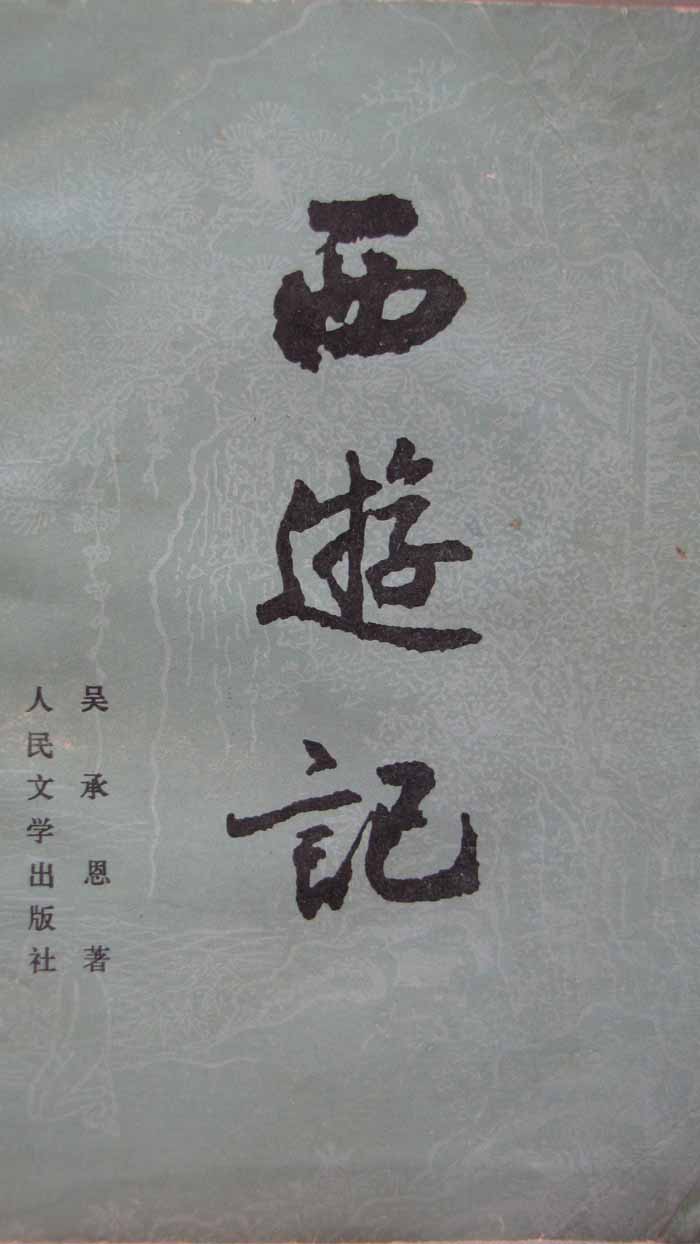 西遊記
吴承恩著
人民文学出版社